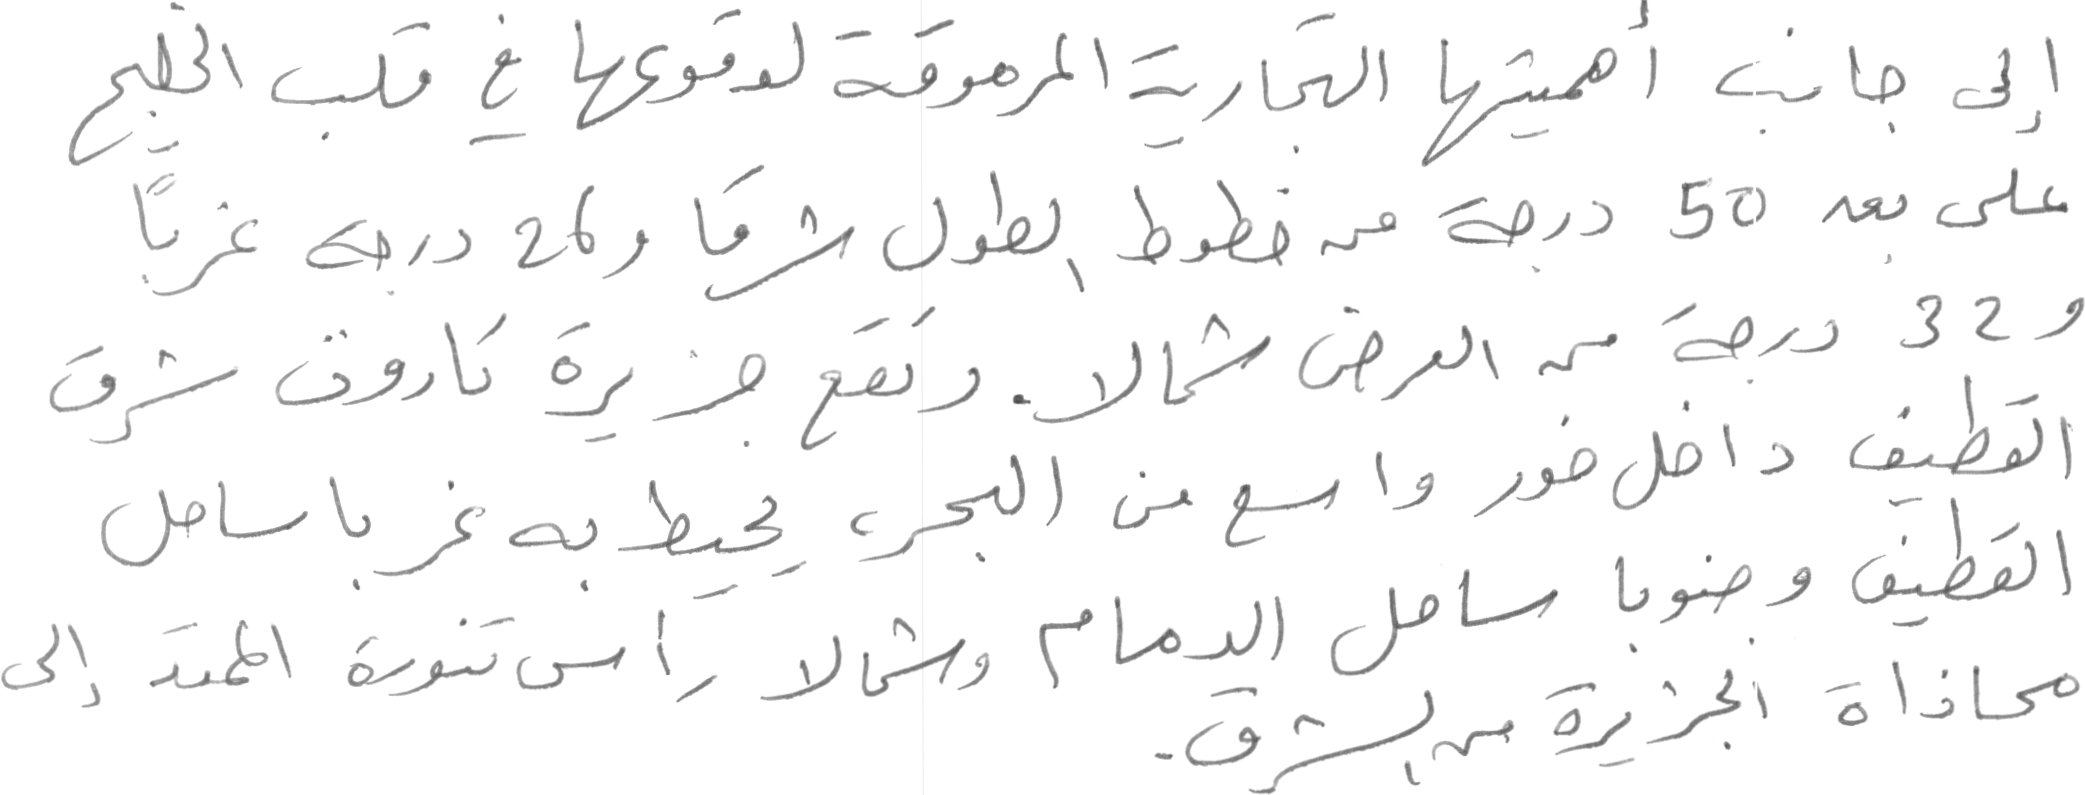 إلى جانب أهميتها التجارية المرموقة لوقوعها في قلب الخليج
على بعد 50 درجة من خطوط الطول شرقا و26 درجة غربًا
و32 درجة من العرض شمالا. وتقع جزيرة تاروت شرق
القطيف داخل خور واسع من البحر، يحيط به غربا ساحل
القطيف وجنوبا ساحل الدمام وشمالا رأس تنورة الممتد إلى
محاذاة الجزيرة من الشرق.